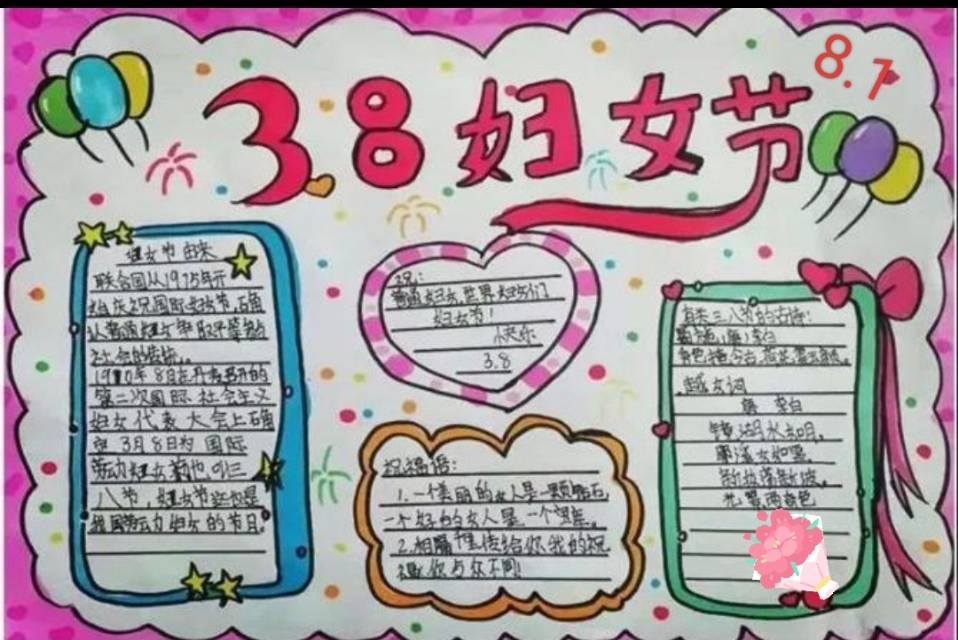 3.8妇女节
8.1
妇女节由来
联合国从1975年开
始庆祝国际妇女节,确
认普通妇女争取平等参与
社会的传统。
1910年8月在丹麦召开的
第二次国际社会主义
妇女代表大会上确
定3月8日为国际
劳动妇女节也叫三
八节,妇女节这也是
我国劳动妇女的节日。
祝:
普通妇女,世界妇女们
妇女节!
快乐
3.8
祝福语:
1.一个美丽的女人是一颗钻石,
一个好的女人是一个宝库。
2.相属
你与众不同!
有关三八节的古诗:
李白
越女词
唐 李白
镜湖水如月,
耶溪女如雪。
新妆荡新波,
光景两奇绝